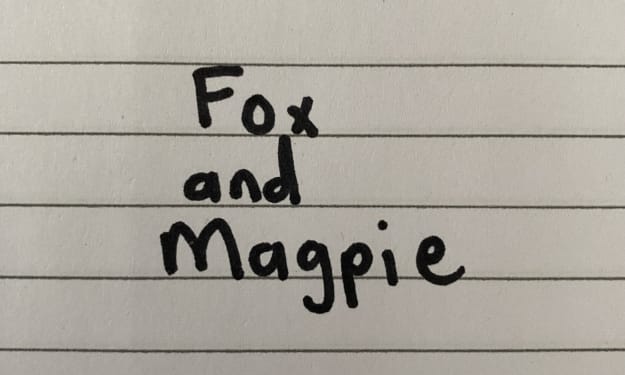 Fox
and
Magpie